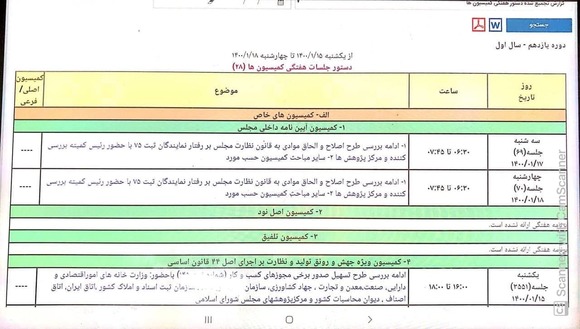 گزارش تجمیع شده دستور هفتگی کمیسیون ها
جستجو
دوره یازدهم - سال اول
از یکشنبه ۱۴۰۰/۱/۱۵ تا چهارشنبه ۱۴۰۰/۱/۱۸
دستور جلسات هفتگی کمیسیون ها (۲۸)
روز
تاریخ
ساعت
موضوع
کمیسیون
اصلی/
فرعی
الف- کمیسیون های خاص
۱- کمیسیون آیین نامه داخلی مجلس
سه شنبه
جلسه(۶۹)
۱۴۰۰/۰۱/۱۷
۰۶:۳۰ تا ۰۷:۴۵
۱- ادامه بررسی طرح اصلاح و الحاق موادی به قانون نظارت مجلس بر رفتار نمایندگان ثبت ۷۵ با حضور رئیس کمیته بررسی
کننده و مرکز پژوهش ها ۲- سایر مباحث کمیسیون حسب مورد
----
چهارشنبه
جلسه(۷۰)
۱۴۰۰/۰۱/۱۸
۰۶:۳۰ تا ۰۷:۴۵
۱- ادامه بررسی طرح اصلاح و الحاق موادی به قانون نظارت مجلس بر رفتار نمایندگان ثبت ۷۵ با حضور رئیس کمیته بررسی
کننده و مرکز پژوهش ها ۲- سایر مباحث کمیسیون حسب مورد
----
۲- کمیسیون اصل نود
هفتگی ارائه نشده است.
۳- کمیسیون تلفیق
هفتگی ارائه نشده است.
۴- کمیسیون ویژه جهش و رونق تولید و نظارت بر اجرای اصل ۴۴ قانون اساسی
یکشنبه
جلسه(۲۵۵۱)
۱۴۰۰/۰۱/۱۵
۱۶:۰۰ تا ۱۸:۰۰
ادامه بررسی طرح تسهیل صدور برخی مجوزهای کسب و کار باحضور: وزارت خانه های امور اقتصادی و
دارایی، صنعت،معدن و تجارت ، جهاد کشاورزی، سازمان سازمان ثبت اسناد و املاک کشور، اتاق ایران، اتاق
اصناف ، دیوان محاسبات کشور و مرکزپژوهشهای مجلس شورای اسلامی
----
CS Scanned with CamScanner